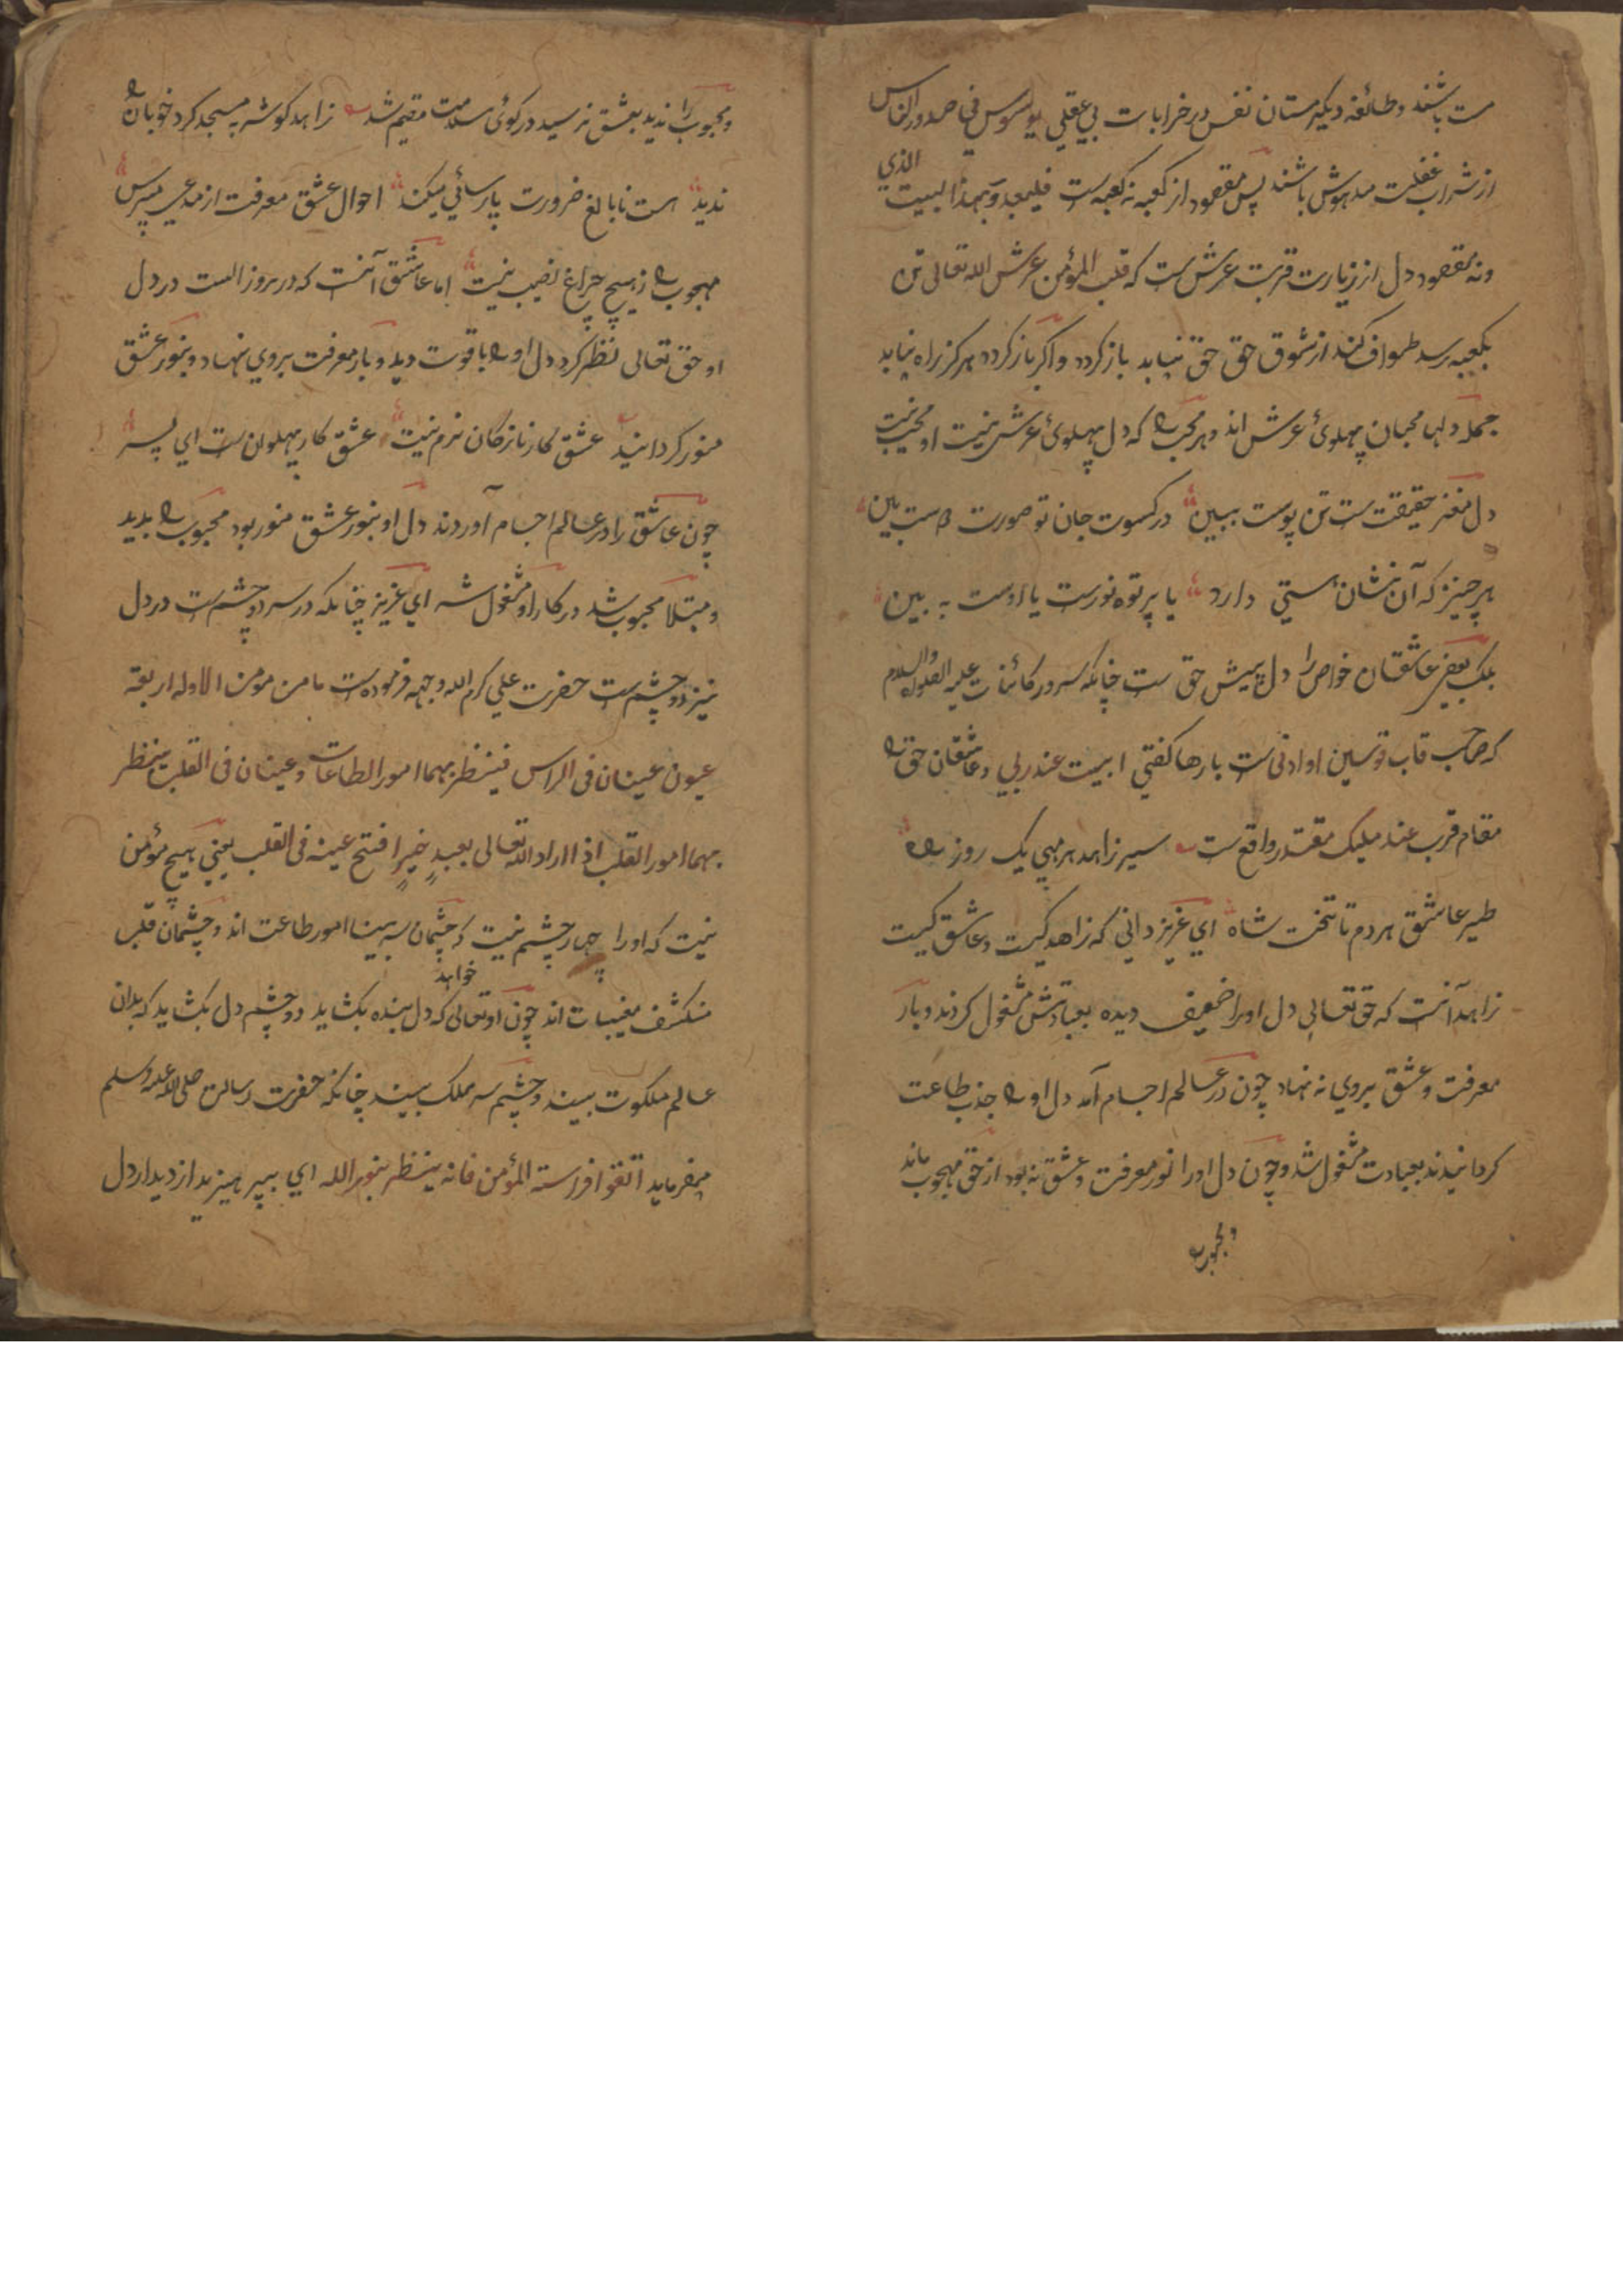 مست باشند و طائفه دیکر مستان نفس در خرابات بی عقلی یوسوس فی صدور الناس
از شراب غفلت مدهوش باشند پس مقصود از کعبه نه کعبه است فلیعبدو رب هذا البیت الذی
و نه مقصود دل از زیارت قربت عرش ست که قلب المؤمن عرش الله تعالی تن
بکعبه رسد طواف کند از شوق حق حق نیابد باز کردد و اکر باز کردد هرکز راه نیابد
جمله دلها محبان پهلوئ عرش اند و هر محب که دل پهلوئ عرش نیست او محب نیست
دل مغز حقیقت ست تن پوست ببین در کسوت جان تو صورت دوست ببین
هر چیز که آن نشان هستی دارد یا پرتوه نورست یا اوست به بین
بلک بعضی عاشقان خواص را دل پیش حق ست چنانکه سرور کائنات علیه الصلوة والسلام
که صاحب قاب قوسین او ادنی ست بارها کفتی ابیت عند ربی و عاشقان حق را
مقام قرب عند ملیک مقتدر واقع ست سیر زاهد هر مهی یک روز راه
طیر عاشق هر دم تا تخت شاه ای عزیز دانی که زاهد کیست و عاشق کیست
زاهد آنست که حق تعالی دل او را ضعیف دیده بعبادتش مشغول کردند و بار
معرفت و عشق بروی نه نهاد چون در عالم اجسام آمد دل او را جذب طاعت
کردانیدند بعبادت مشغول شد و چون دل او را نور معرفت و عشق نه بود از حق مهجوب ماند
و محبوب
و محبوب را ندید بعشق نرسید در کوئ سلامت مقیم شد زاهد کوشه به مسجد کرد خوبان را
ندید هست نابالغ ضرورت پارسائی میکند احوال عشق معرفت از مدعی مپرس
مهجوب را ز هیچ چراغ نصیب نیست اما عاشق آنست که در روز الست در دل
او حق تعالی نظر کرد دل او را باقوت دید و بار معرفت بروی نهاد و بنور عشق
منور کردانید عشق کار نازکان نرم نیست عشق کار پهلوان ست ای پسر
چون عاشق را در عالم اجسام آوردند دل او بنور عشق منور بود محبوب را بدید
و مبتلا محبوب شد در کار او مشغول شد ای عزیز چنانکه در سر دو چشم ست در دل
نیز دو چشم ست حضرت علی کرم الله وجهه فرموده ست ما من مومن الا وله اربعة
عیون عینان فی الراس فینظر بهما امور الطاعات و عینان فی القلب ینظر
بهما امور القلب اذا اراد الله تعالی بعبد خیرا فتح عینه فی القلب یعنی هیچ مؤمن
نیست که او را چهار چشم نیست که چشمان سر بینا امور طاعت اند و چشمان قلب
منکشف مغیبات اند چون او تعالی خواهد که دل بنده بکشاید دو چشم دل بکشاید که بدان
عالم ملکوت بیند و چشم سر ملک بیند چنانکه حضرت رسالت صلی الله علیه وسلم
میفرماید اتقوا فراسة المؤمن فانه ینظر بنور الله ای بپرهیزید از دیدار دل